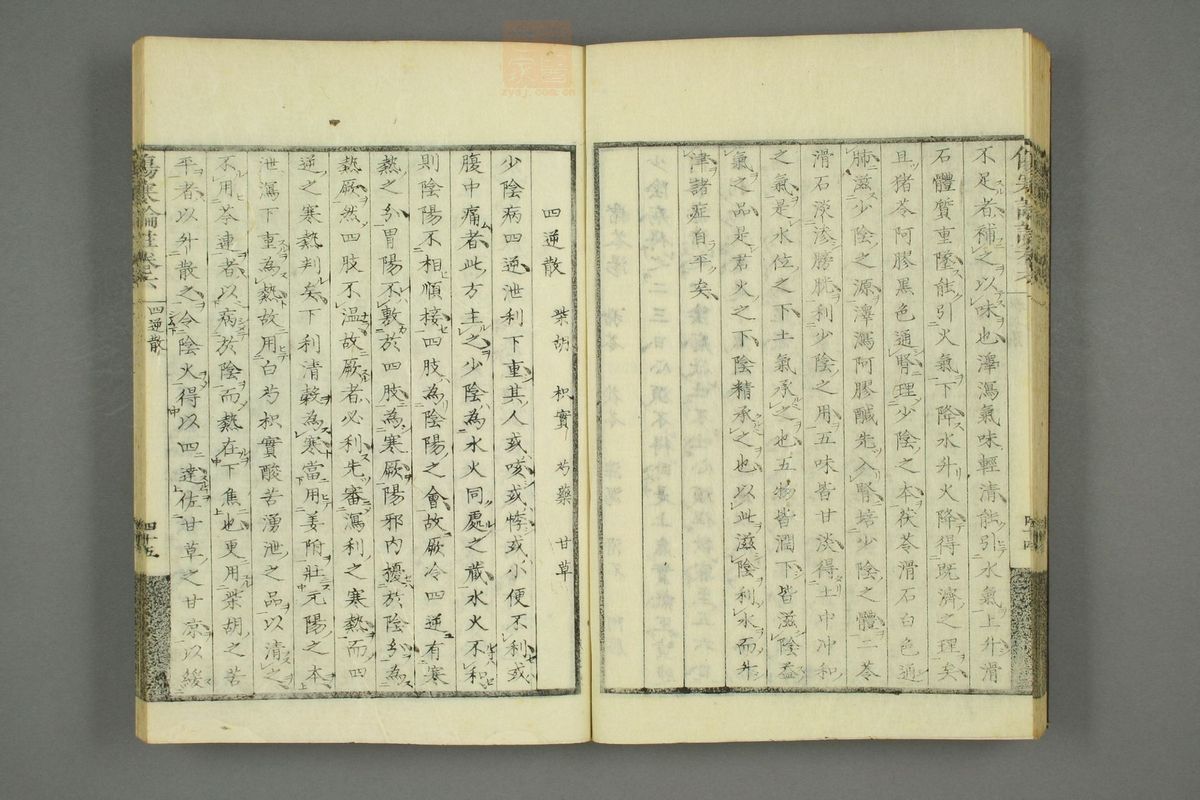 不足者補之以味也澤瀉氣味輕清能引水氣上升滑
石體質重墜能引火氣下降水升火降得既濟之理矣
且猪苓阿膠黑色通腎理少陰之本茯苓滑石白色通
肺滋少陰之源澤瀉阿膠醎先入腎培少陰之體二苓
滑石淡滲膀胱利少陰之用五味皆甘淡得土中冲和
之氣是水位之下土氣承之也五物皆潤下皆滋陰益
氣之品是君火之下陰精承之也以此滋陰利水而升
津諸症自平矣
四逆散 柴胡 枳實 芍藥 甘草
少陰病四逆泄利下重其人或咳或悸或小便不利或
腹中痛者此方主之少陰為水火同處之藏水火不和
則陰陽不相順接四肢為陰陽之會故厥冷四逆有寒
熱之分胃陽不敷於四肢為寒厥陽邪內擾於陰分為
熱厥然四肢不温故厥者必利先審瀉利之寒熱而四
逆之寒熱判矣下利清穀為寒當用姜附壯元陽之本
泄瀉下重為熱故用白芍枳實酸苦湧泄之品以清之
不用苓連者以病於陰而熱在下焦也更用柴胡之苦
平者以升散之令陰火得以四達佐甘草之甘凉以緩
傷寒論註卷六
四逆散
四十五
四十四
zysj.com.cn